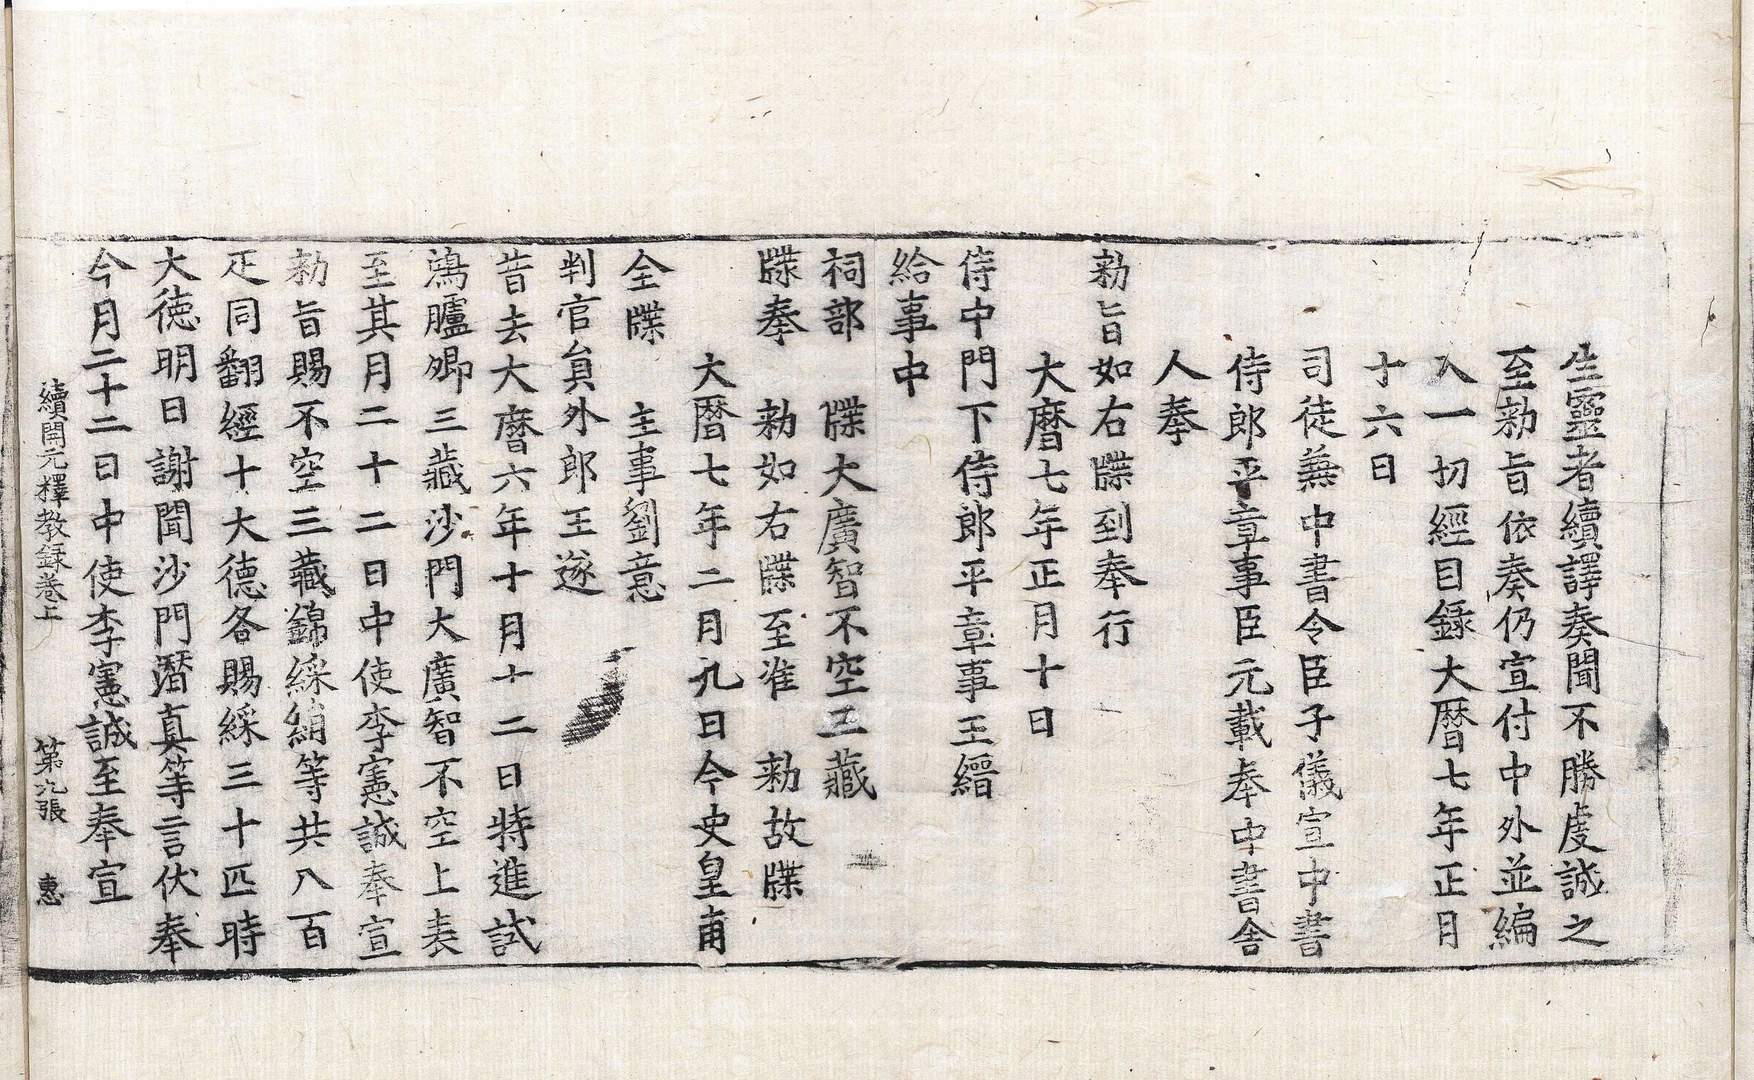 生靈者續譯奏聞不勝虔誠之
至勑旨依奏仍宣付中外並編
入一切經目錄大曆七年正月
十六日
司徒兼中書令臣子儀宣中書
侍郎平章事臣元載奉中書舍
人奉
勑旨如右牒到奉行
大曆七年正月十日
侍中門下侍郎平章事王縉
給事中
祠部 牒大廣智不空三藏
牒奉 勑如右牒至准 勑故牒
大曆七年二月九日令史皇甫
全牒 主事劉意
判官貟外郎王遂
昔去大曆六年十月十二日特進試
鴻臚卿三藏沙門大廣智不空上表
至其月二十二日中使李憲誠奉宣
勑旨賜不空三藏錦綵絹等共八百
疋同翻經十大德各賜綵三十匹時
大徳明日謝聞沙門潛真等言伏奉
今月二十二日中使李憲誠至奉宣
續開元釋教録卷上 第九張 惠